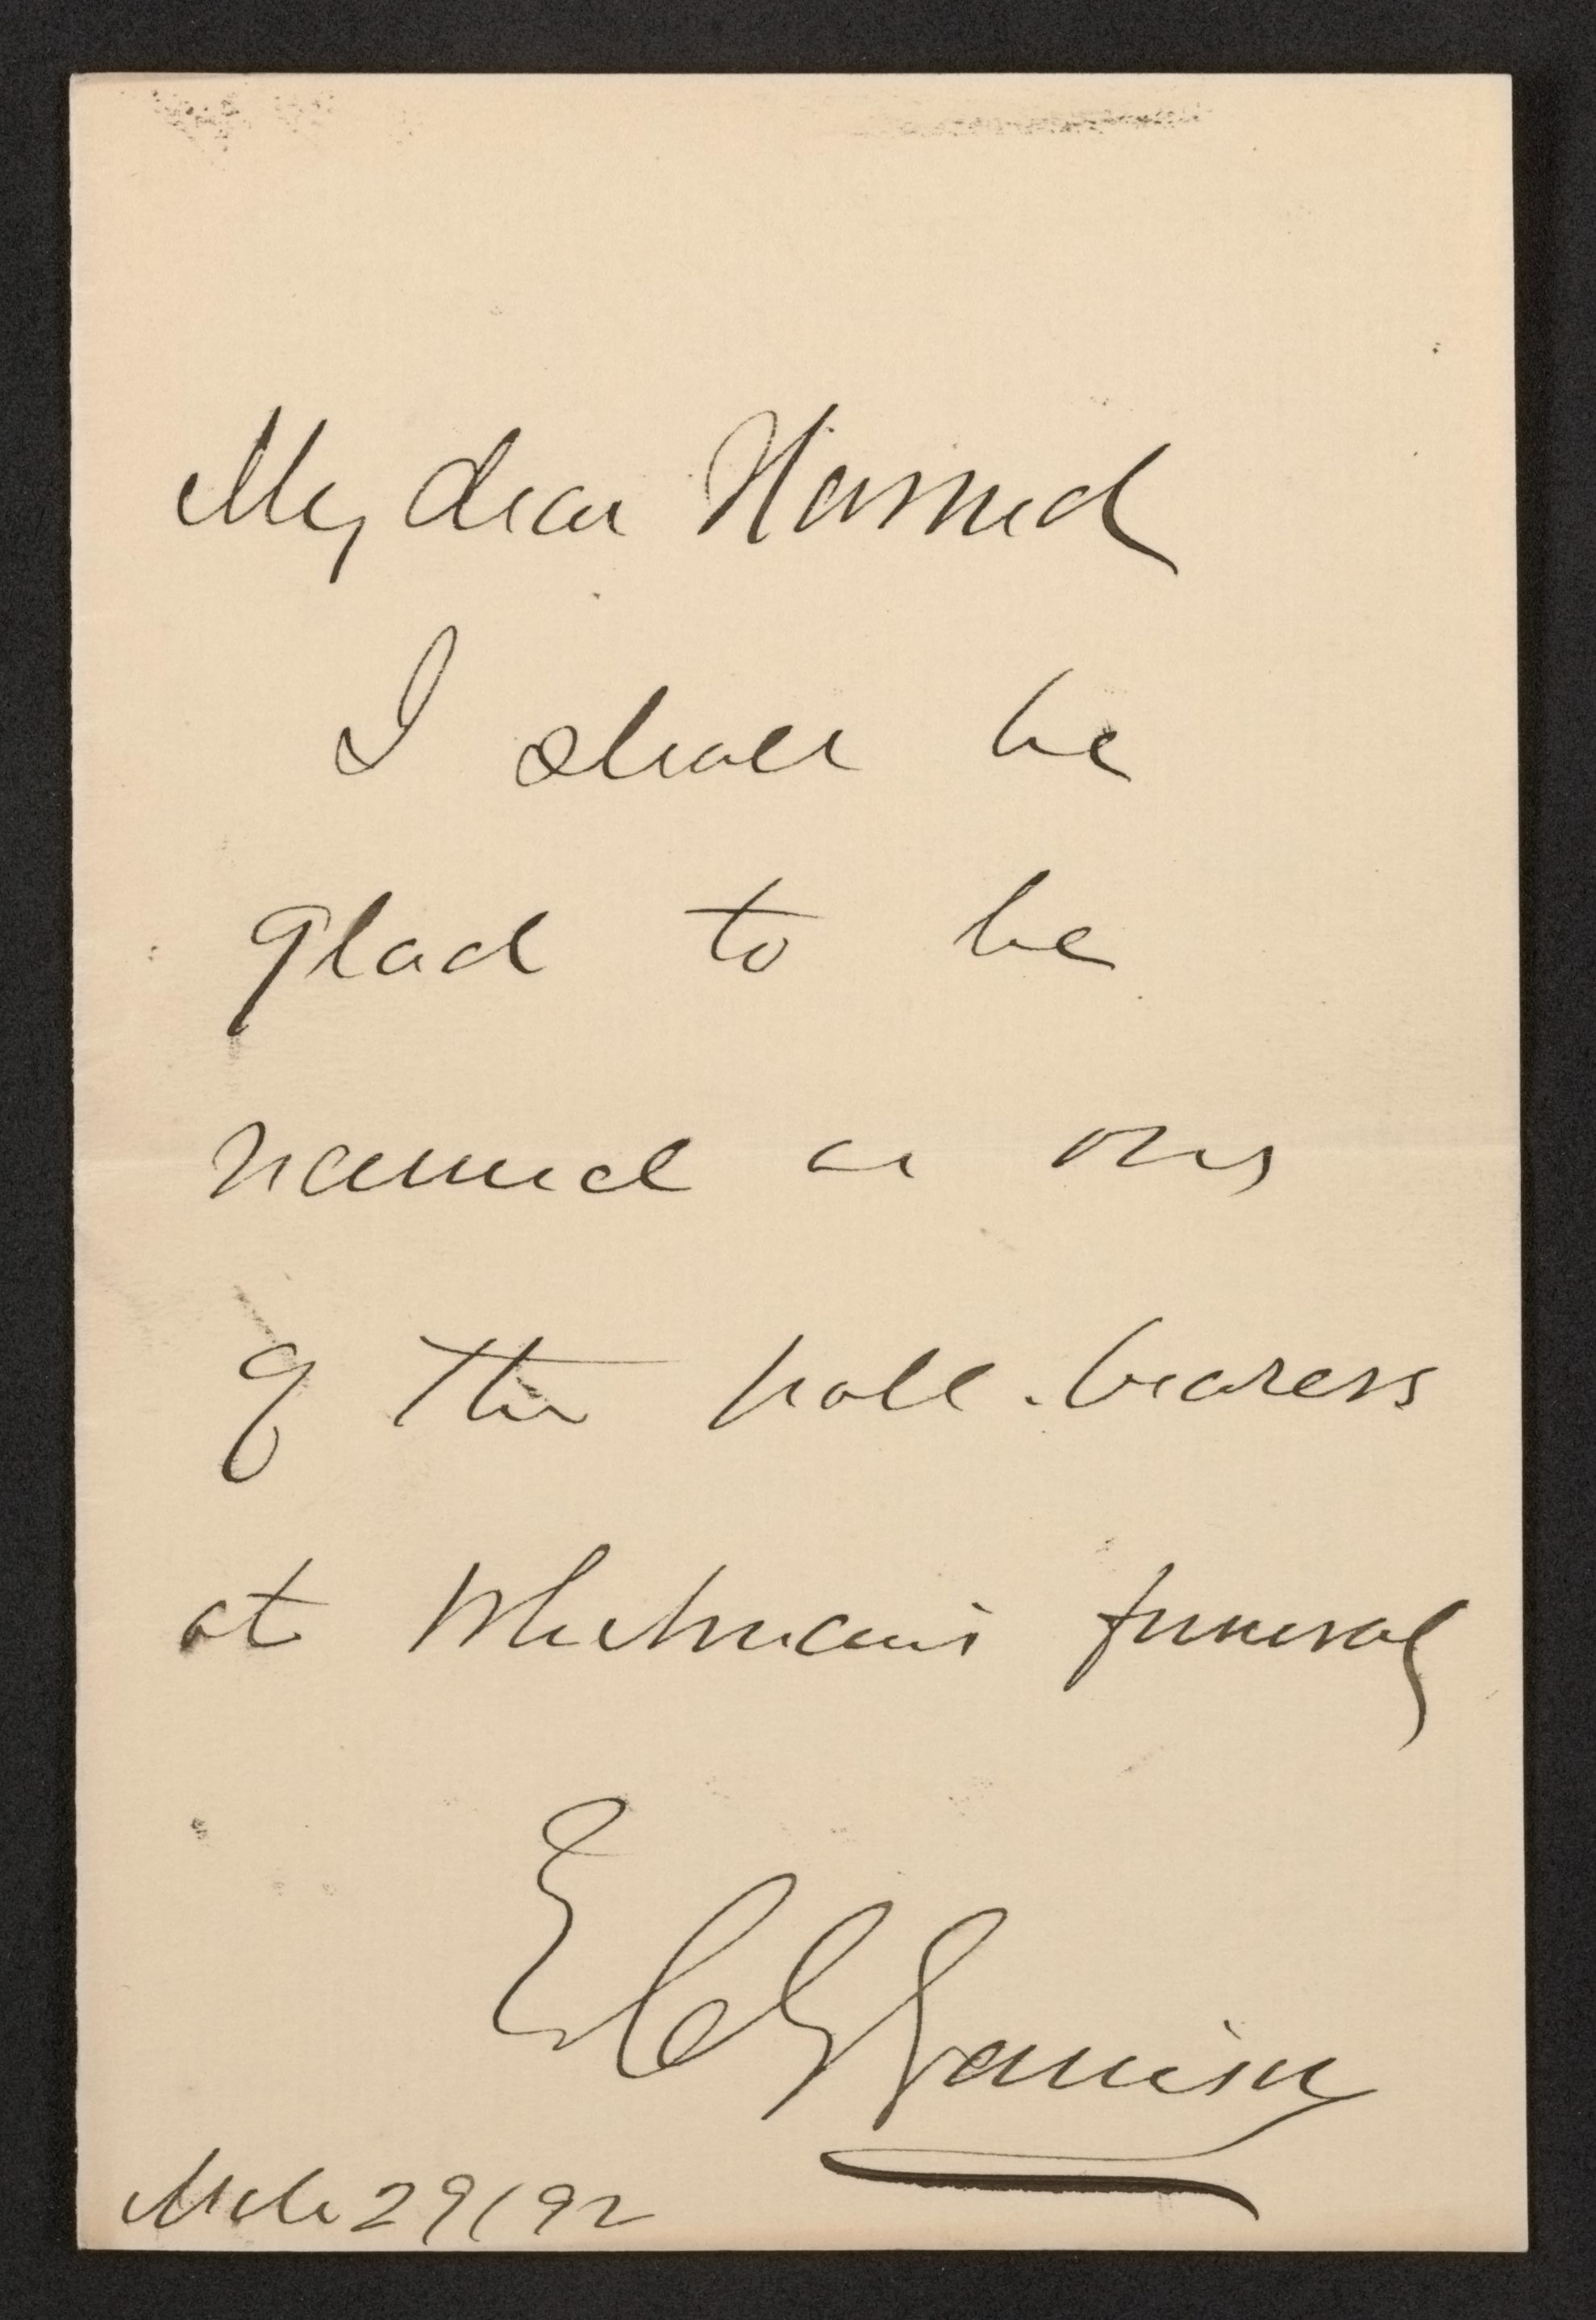 My dear Harned
I shall be
glad to be
named as one
of the pall-bearers
at Whitman's funeral
Mch 29/92